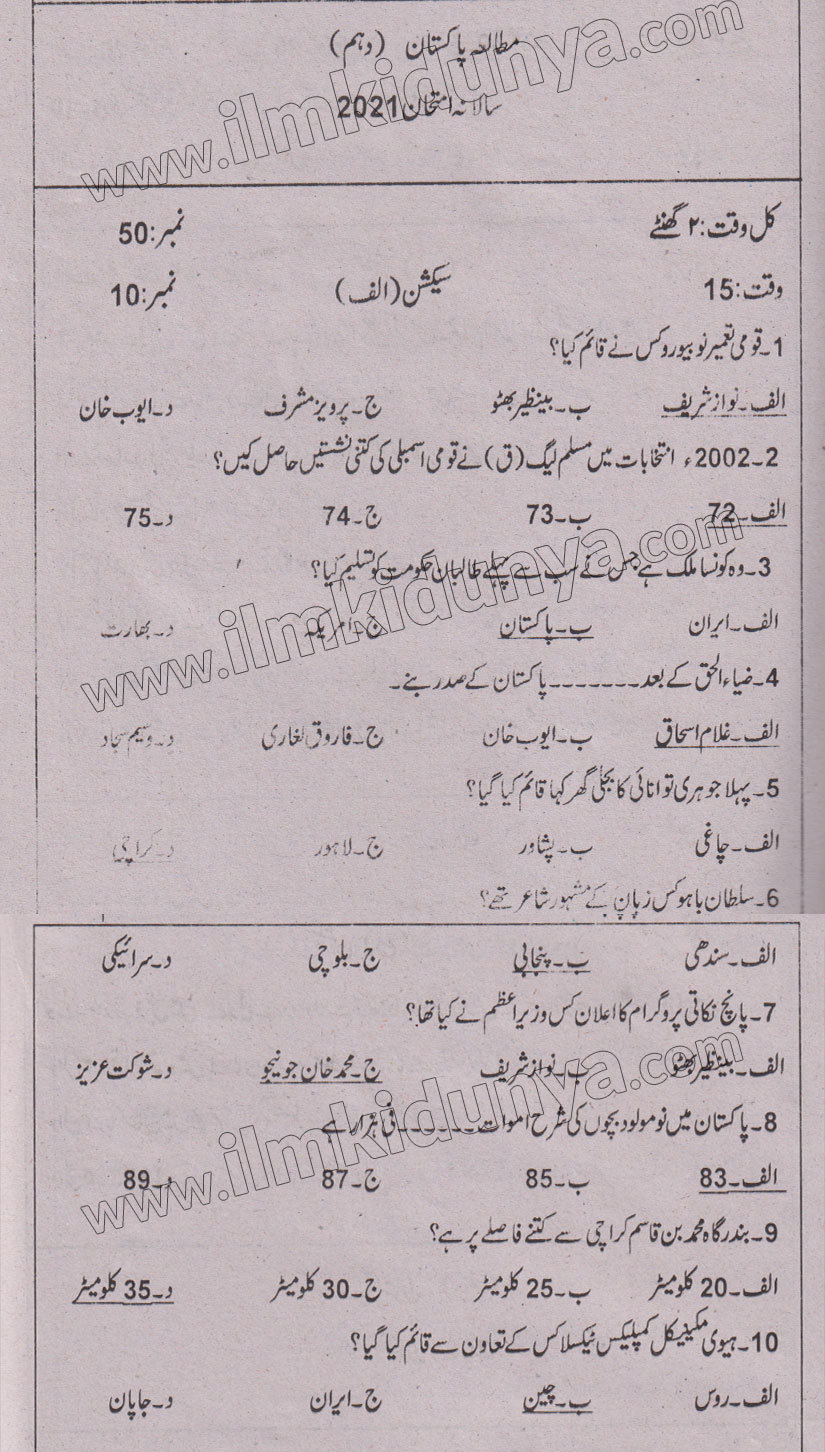 مطالعہ پاکستان (دہم)
سالانہ امتحان 2021
www.ilmkidunya.com
کل وقت: ۲ گھنٹے نمبر: 50
وقت: 15 سیکشن (الف) نمبر: 10
1۔ قومی تعمیر نو بیورو کس نے قائم کیا؟
الف۔ نواز شریف ب۔ بینظیر بھٹو ج۔ پرویز مشرف د۔ ایوب خان
2۔ 2002ء انتخابات میں مسلم لیگ (ق) نے قومی اسمبلی کی کتنی نشستیں حاصل کیں؟
الف۔ 72 ب۔ 73 ج۔ 74 د۔ 75
3۔ وہ کونسا ملک ہے جس نے سب سے پہلے طالبان حکومت کو تسلیم کیا؟
الف۔ ایران ب۔ پاکستان ج۔ امریکہ د۔ بھارت
www.ilmkidunya.com
4۔ ضیاء الحق کے بعد ------- پاکستان کے صدر بنے۔
الف۔ غلام اسحاق ب۔ ایوب خان ج۔ فاروق لغاری د۔ وسیم سجاد
5۔ پہلا جوہری توانائی کا بجلی گھر کہا قائم کیا گیا؟
الف۔ چاغی ب۔ پشاور ج۔ لاہور د۔ کراچی
6۔ سلطان باہو کس زبان کے مشہور شاعر تھے؟
الف۔ سندھی ب۔ پنجابی ج۔ بلوچی د۔ سرائیکی
7۔ پانچ نکاتی پروگرام کا اعلان کس وزیراعظم نے کیا تھا؟
الف۔ بینظیر بھٹو ب۔ نواز شریف ج۔ محمد خان جونیجو د۔ شوکت عزیز
8۔ پاکستان میں نومولود بچوں کی شرح اموات ------ فی ہزار ہے
الف۔ 83 ب۔ 85 ج۔ 87 د۔ 89
www.ilmkidunya.com
9۔ بندرگاہ محمد بن قاسم کراچی سے کتنے فاصلے پر ہے؟
الف۔ 20 کلومیٹر ب۔ 25 کلومیٹر ج۔ 30 کلومیٹر د۔ 35 کلومیٹر
10۔ ہیوی مکینیکل کمپلیکس ٹیکسلا کس کے تعاون سے قائم کیا گیا؟
الف۔ روس ب۔ چین ج۔ ایران د۔ جاپان